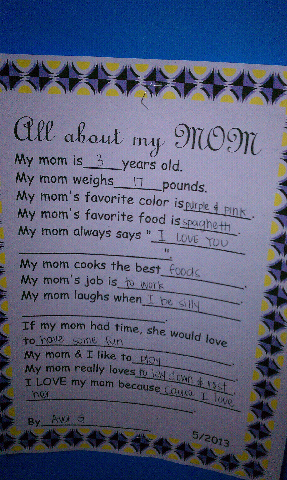 All about my MOM
My mom is 3 years old.
My mom weighs 17 pounds.
My mom's favorite color is purple & pink.
My mom's favorite food is spaghetti.
My mom always says " I LOVE YOU
".
My mom cooks the best foods.
My mom's job is to work
My mom laughs when I be silly
If my mom had time, she would love
to have some fun
My mom & I like to play.
My mom really loves to lay down & rest
I LOVE my mom because cause I love
her
By Ava G
5/2013